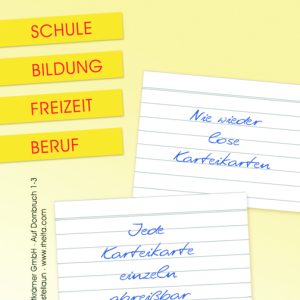 SCHULE
BILDUNG
FREIZEIT
BERUF
Nie wieder
lose
Karteikarten
Jede
Karteikarte
einzeln
abreißbar
GmbH · Auf Dornbruch 1-3
www.rheita.com